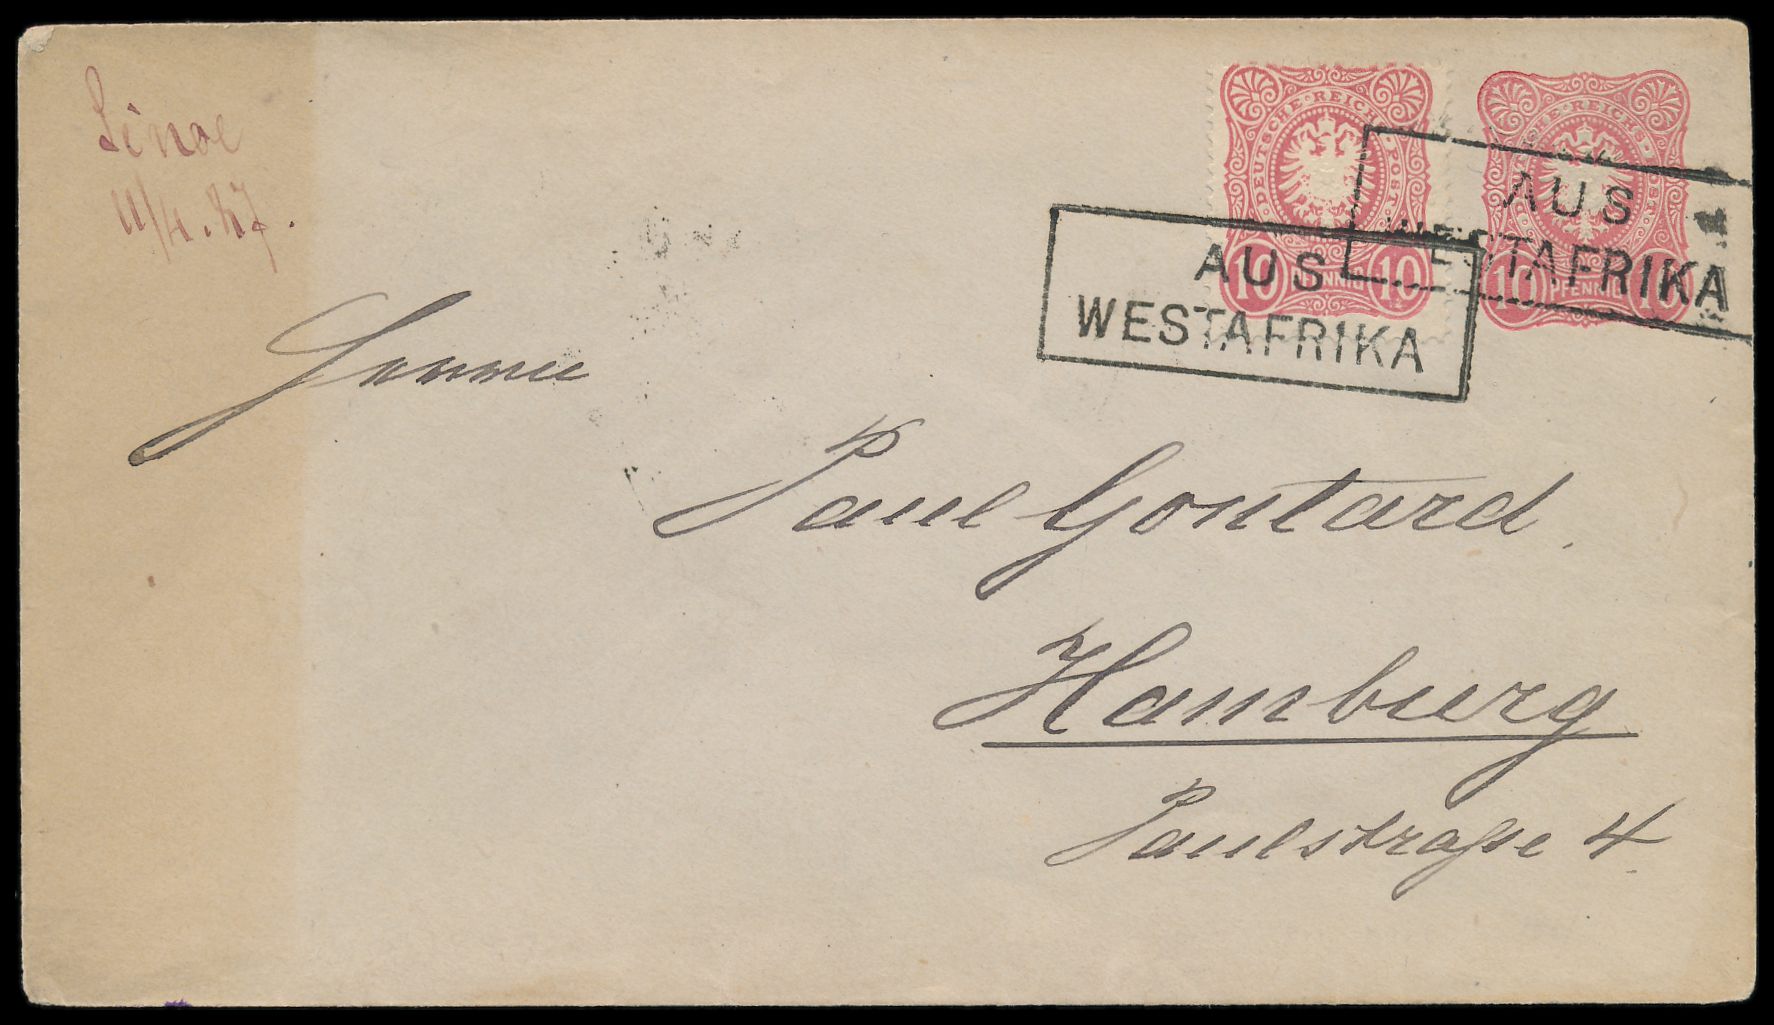 Sinoe
11/4.87.
DEUTSCHE · REICHS · POST
10 PFENNIG 10
DEUTSCHE · REICHS · POST
10 PFENNIG 10
AUS
WESTAFRIKA
AUS
WESTAFRIKA
Herrn
Paul Gontard.
Hamburg
Paulstraße 4.